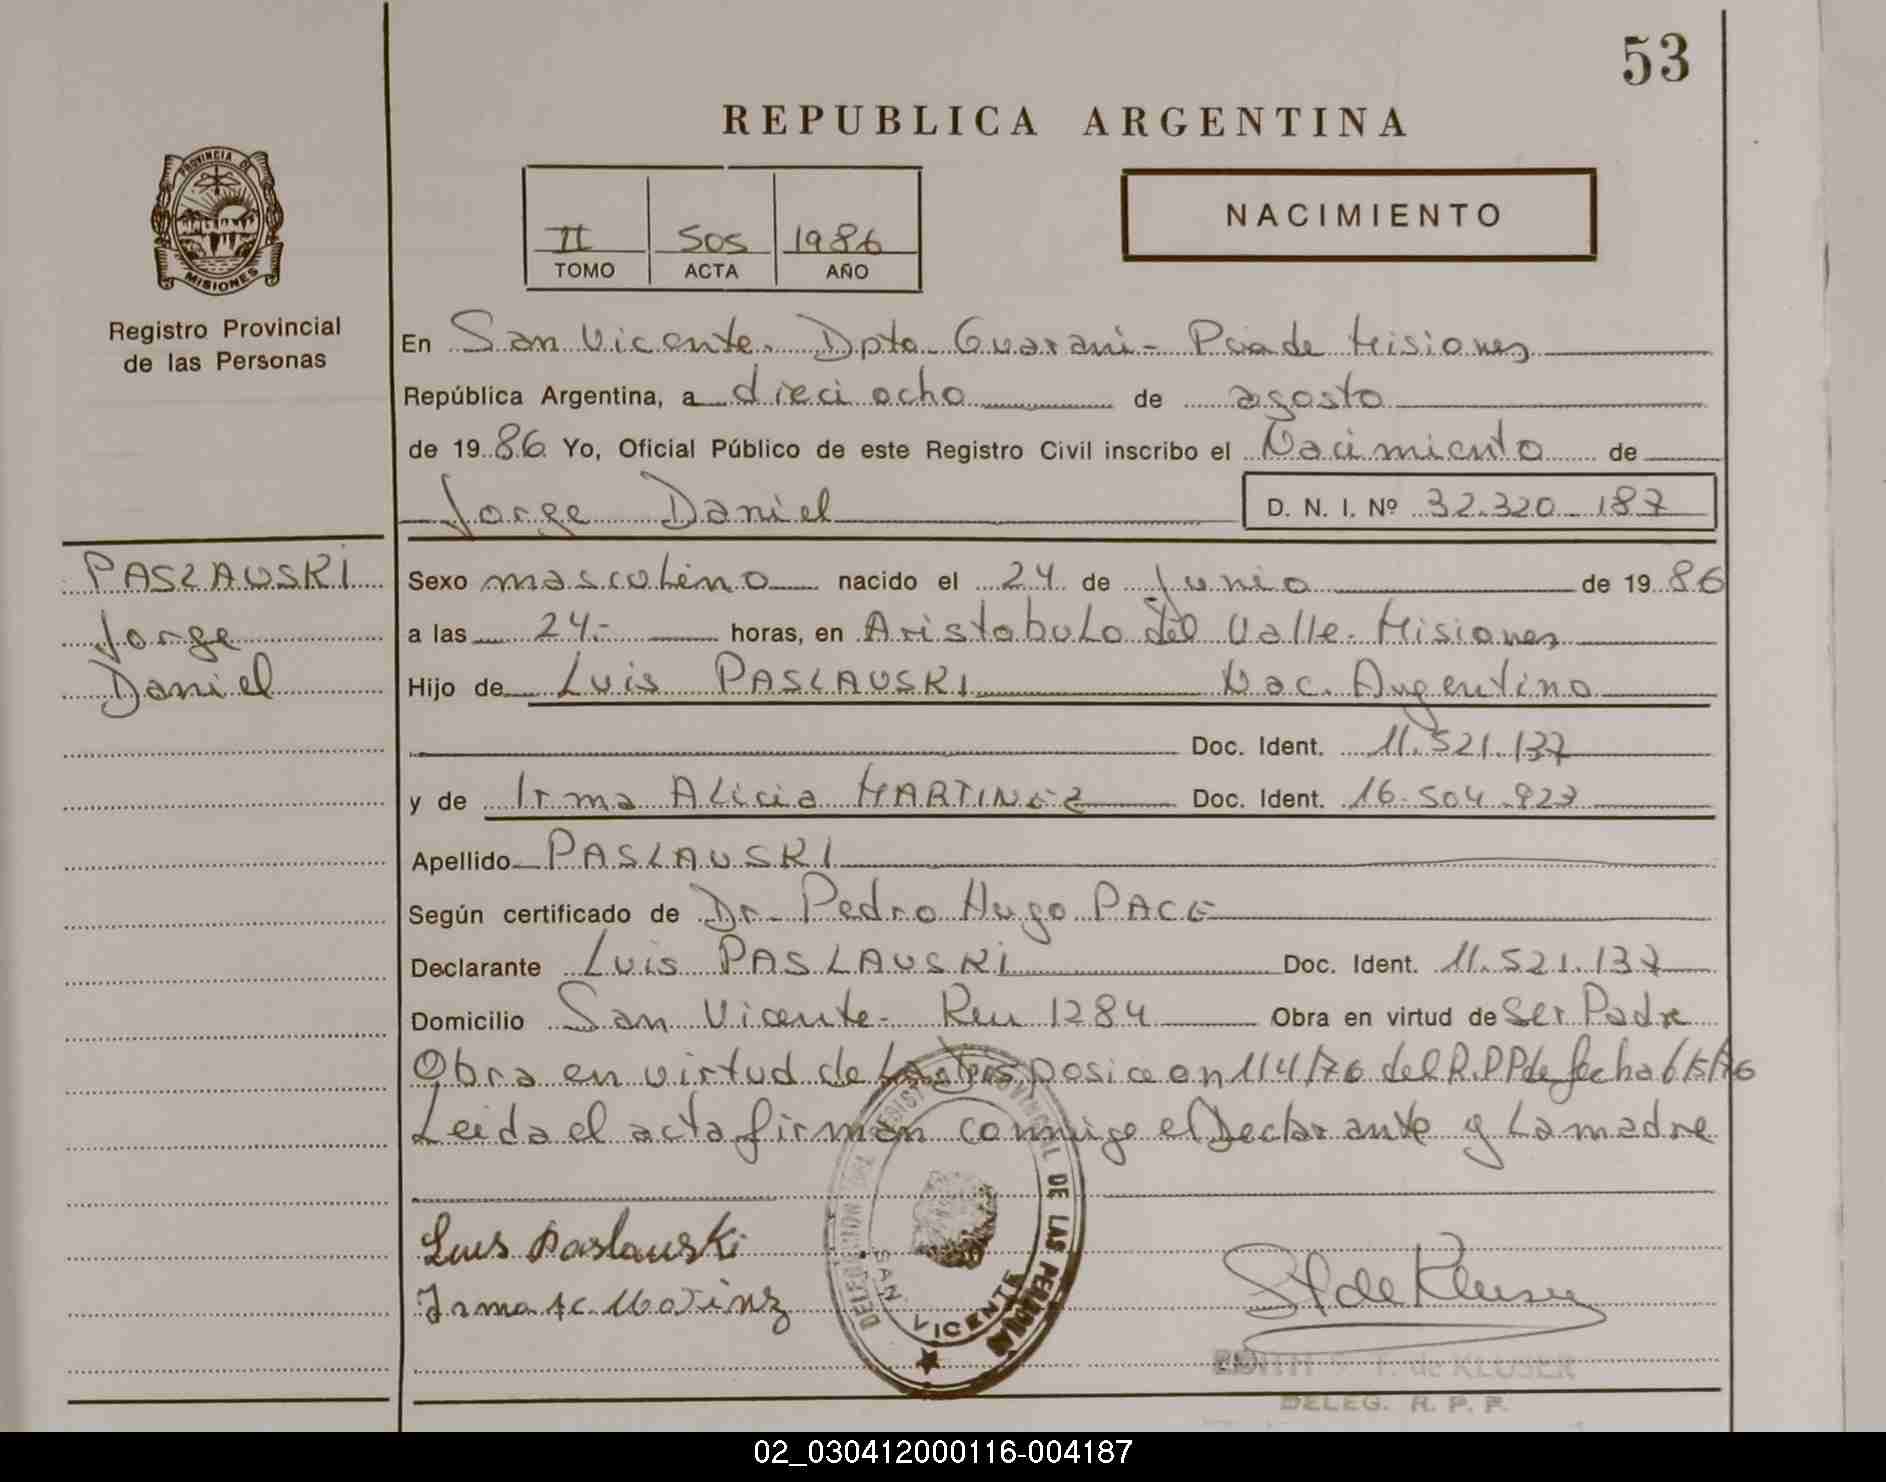 53
REPUBLICA ARGENTINA
PROVINCIA DE
MISIONES
Registro Provincial
de las Personas
II 505 1986
TOMO ACTA AÑO
NACIMIENTO
En San Vicente. Dpto Guaraní - Pcia de Misiones
República Argentina, a dieciocho de agosto
de 1986 Yo, Oficial Público de este Registro Civil inscribo el Nacimiento de
Jorge Daniel D. N. I. Nº 32.320.187
PASLAUSKI
Jorge
Daniel
Sexo masculino nacido el 24 de Junio de 1986
a las 24.- horas, en Aristobulo del Valle. Misiones
Hijo de Luis PASLAUSKI Nac. Argentino
Doc. Ident. 11.521.137
y de Irma Alicia MARTINEZ Doc. Ident. 16.504.923
Apellido PASLAUSKI
Según certificado de Dr. Pedro Hugo PACE
Declarante Luis PASLAUSKI Doc. Ident. 11.521.137
Domicilio San Vicente - 1284 Obra en virtud de ser Padre
Obra en virtud de La disposicion 114/76 del R.P.P de fecha 6/5/76
Leida el acta firman conmigo el Declarante y La madre
Luis Paslauski
DELEGACION REGISTRO PROVINCIAL DE LAS PERSONAS
SAN VICENTE
de KLUSER
DELEG. R. P. P.
02_030412000116-004187